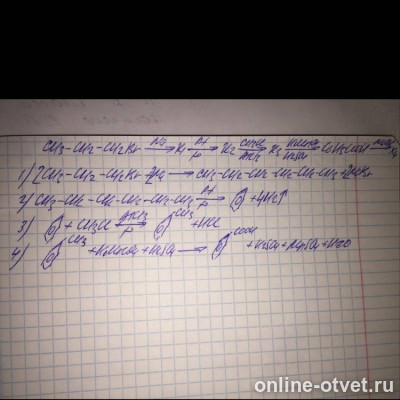 CH3-CH2-CH2Br Na→ X1 Pt→ X2 CH3Cl→ AlCl3 X3 KMnO4→ H2SO4 C6H5COOH
1) 2CH3-CH2-CH2Br + 2Na → CH3-CH2-CH2-CH2-CH2-CH3 + 2NaBr
2) CH3-CH2-CH2-CH2-CH2-CH3 Pt→ + 4H2↑
3) + CH3Cl AlCl3→ CH3 + HCl
4) CH3 + KMnO4 + H2SO4 → COOH + K2SO4 + MnSO4 + H2O
online-otvet.ru